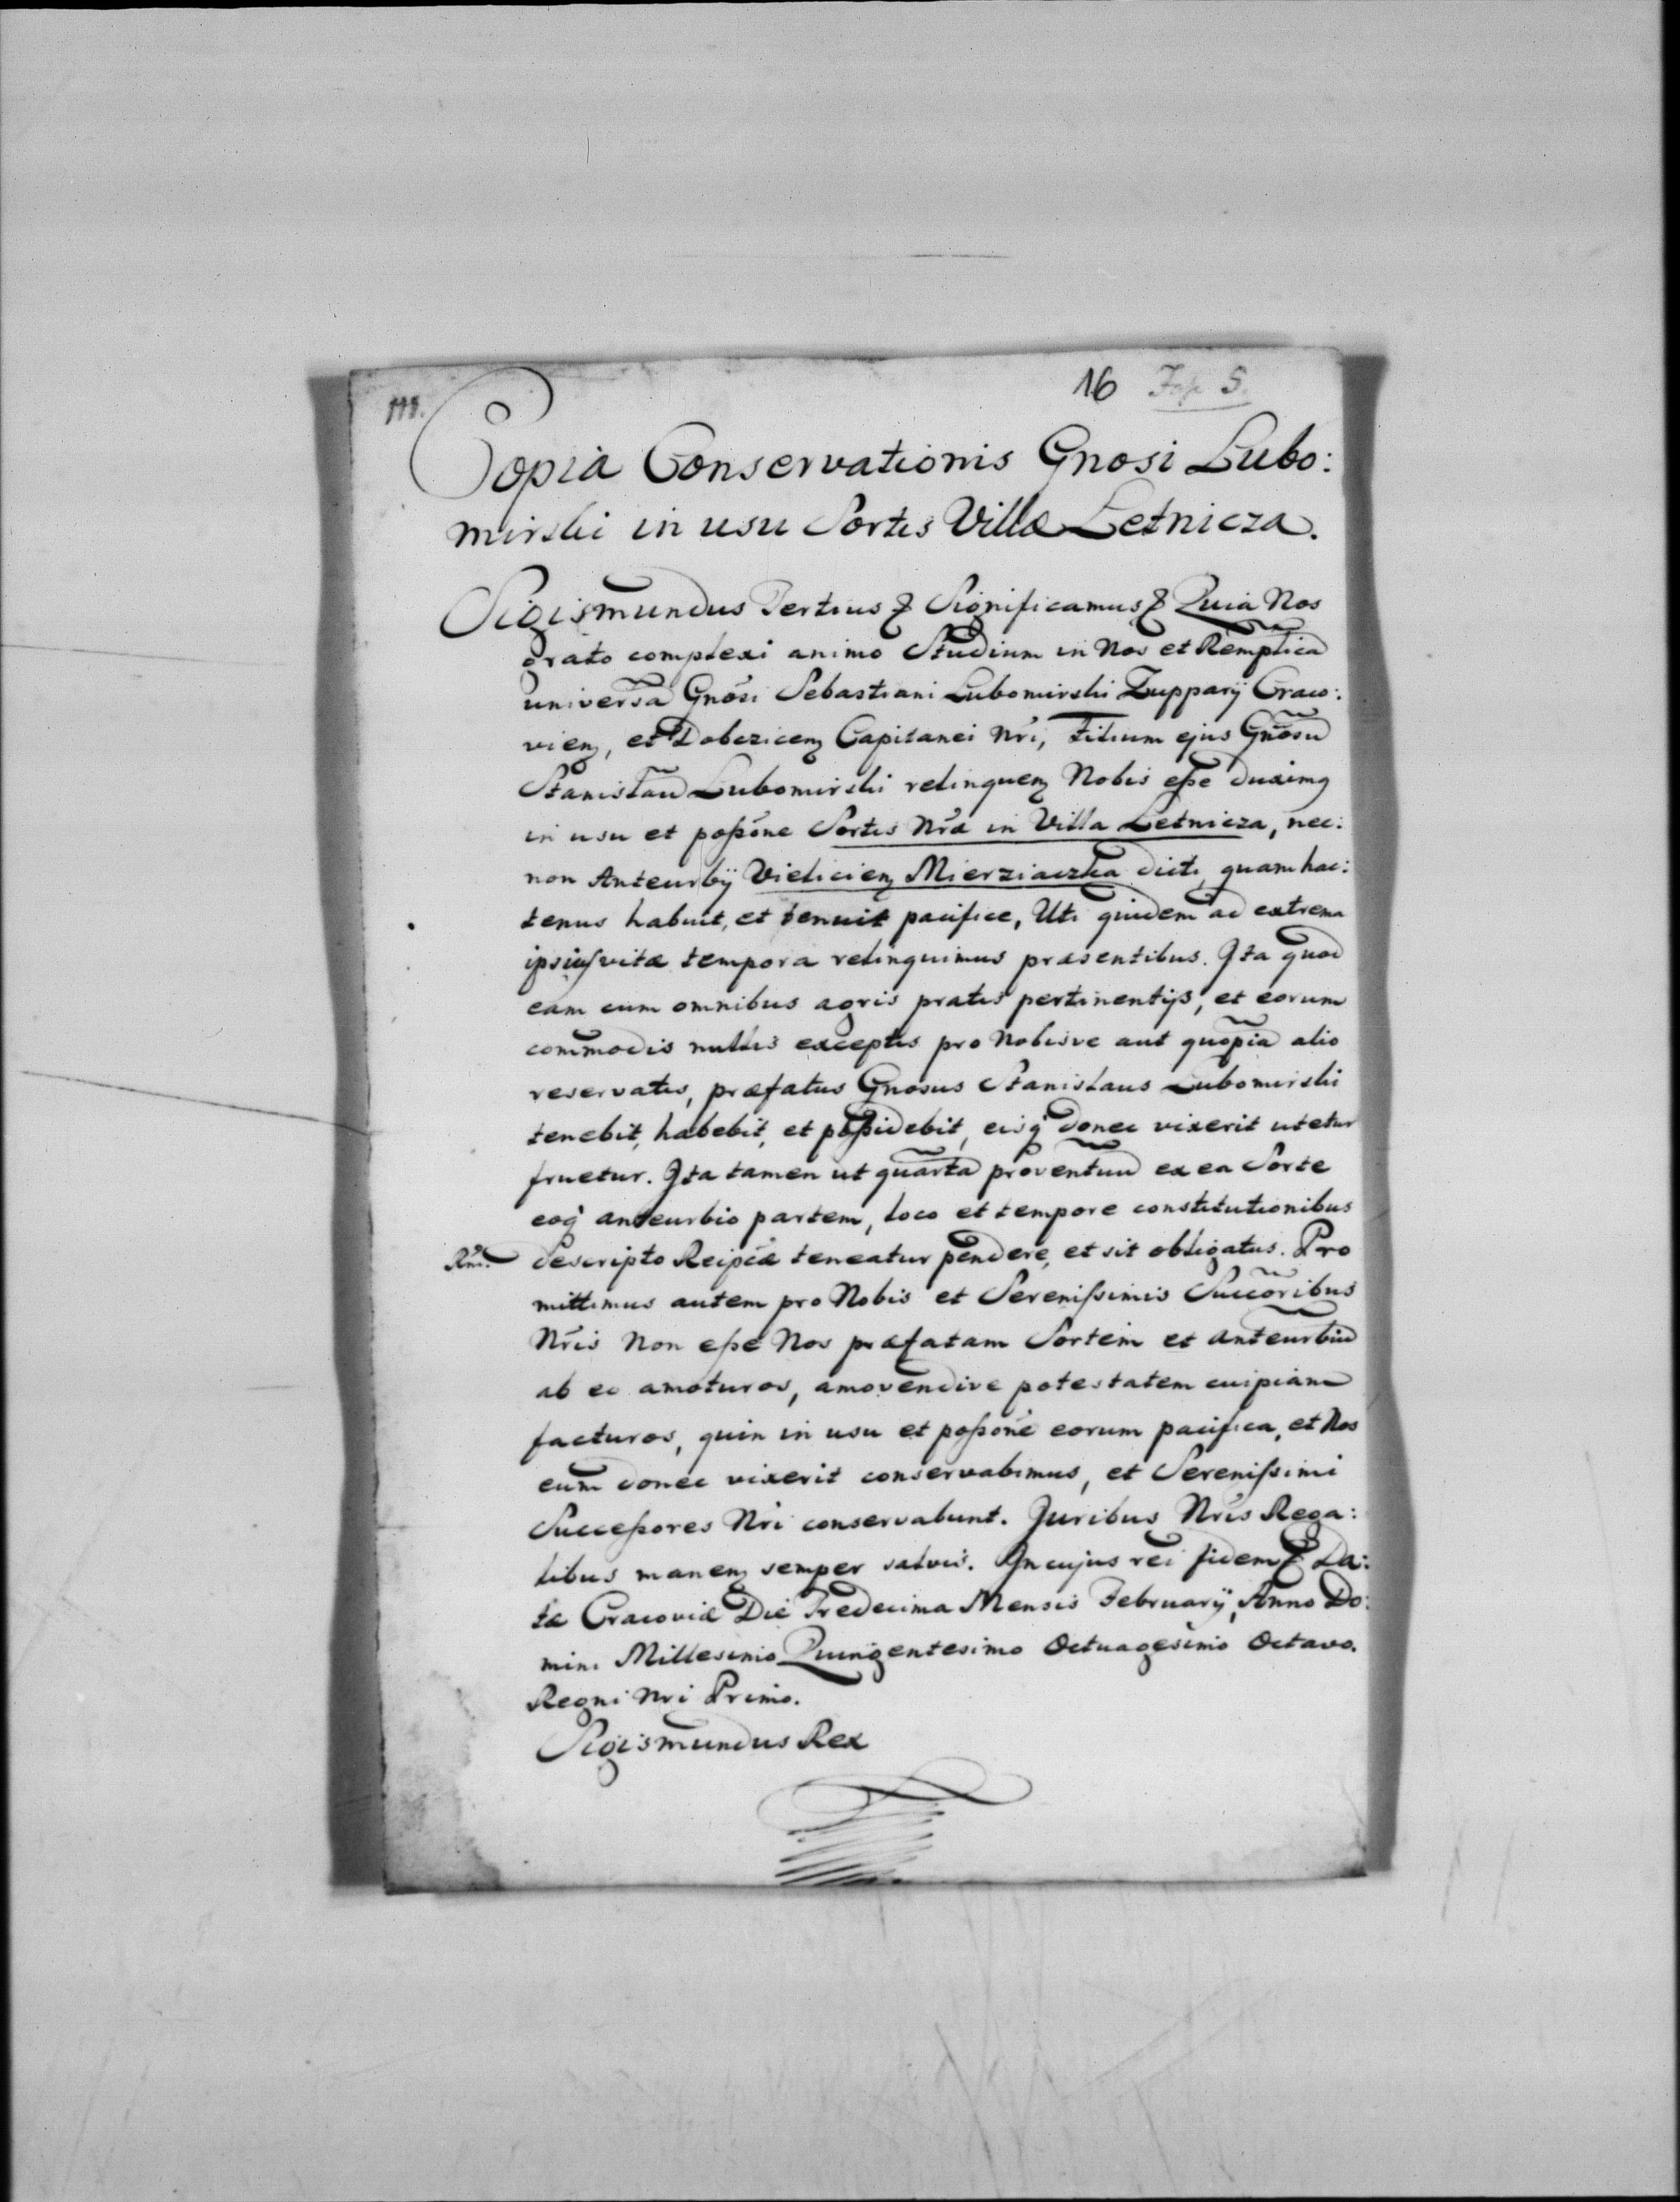 16 Fas. 5.
Copia Conservationis Gnosi Lubo:
mirski in usu Sortis Villæ Letnicza.
Sigismundus Tertius & Significamus & Quia Nos
grato complexi animo Studium in Nos et Remplicã
universã Gnõsi Sebastiani Lubomirski Zupparij Craco:
vienꝫ, et Dobczicenꝫ Capitanei Nri, Filium ejus Gnõsũ
Stanislaũ Lubomirski relinquenꝫ Nobis eße duximꝫ
in usu et poßone Sortis Nræ in Villa Letnicza, nec:
non Anteurbij Vielicienꝫ Mierziaczka dicti, quam hac:
tenus habuit, et tenuit pacifice, Uti quidem ad extrema
ipsius vitæ tempora relinquimus præsentibus. Ita quod
eam cum omnibus agris pratis pertinentijs, et eorum
commodis nullis exceptis pro Nobisve aut quopiã alio
reservatis, præfatus Gnosus Stanislaus Lubomirski
tenebit, habebit, et poßidebit, eisq donec vixerit utetur
fruetur. Ita tamen ut quartã proventuũ ex ea Sorte
eoq anteurbio partem, loco et tempore constitutionibus
descripto Reipcæ teneatur pendere, et sit obligatus. Pro
mittimus autem pro Nobis et Sereniſsimis Succoribus
Nris Non eße Nos præfatam Sortem et anteurbiũ
ab eo amoturos, amovendive potestatem cuipiam
facturos, quin in usu et poßone eorum pacifica, et Nos
eum donec vixerit conservabimus, et Sereniſsimi
Succeßores Nri conservabunt. Juribus Nris Rega:
libus manenꝫ semper salvis. In cujus rei fidem & Da:
tæ Cracoviæ Die Tredecima Mensis February, Anno Do:
mini Millesimo Quingentesimo Octuagesimo Octavo.
Regni Nri Primo.
Sigismundus Rex